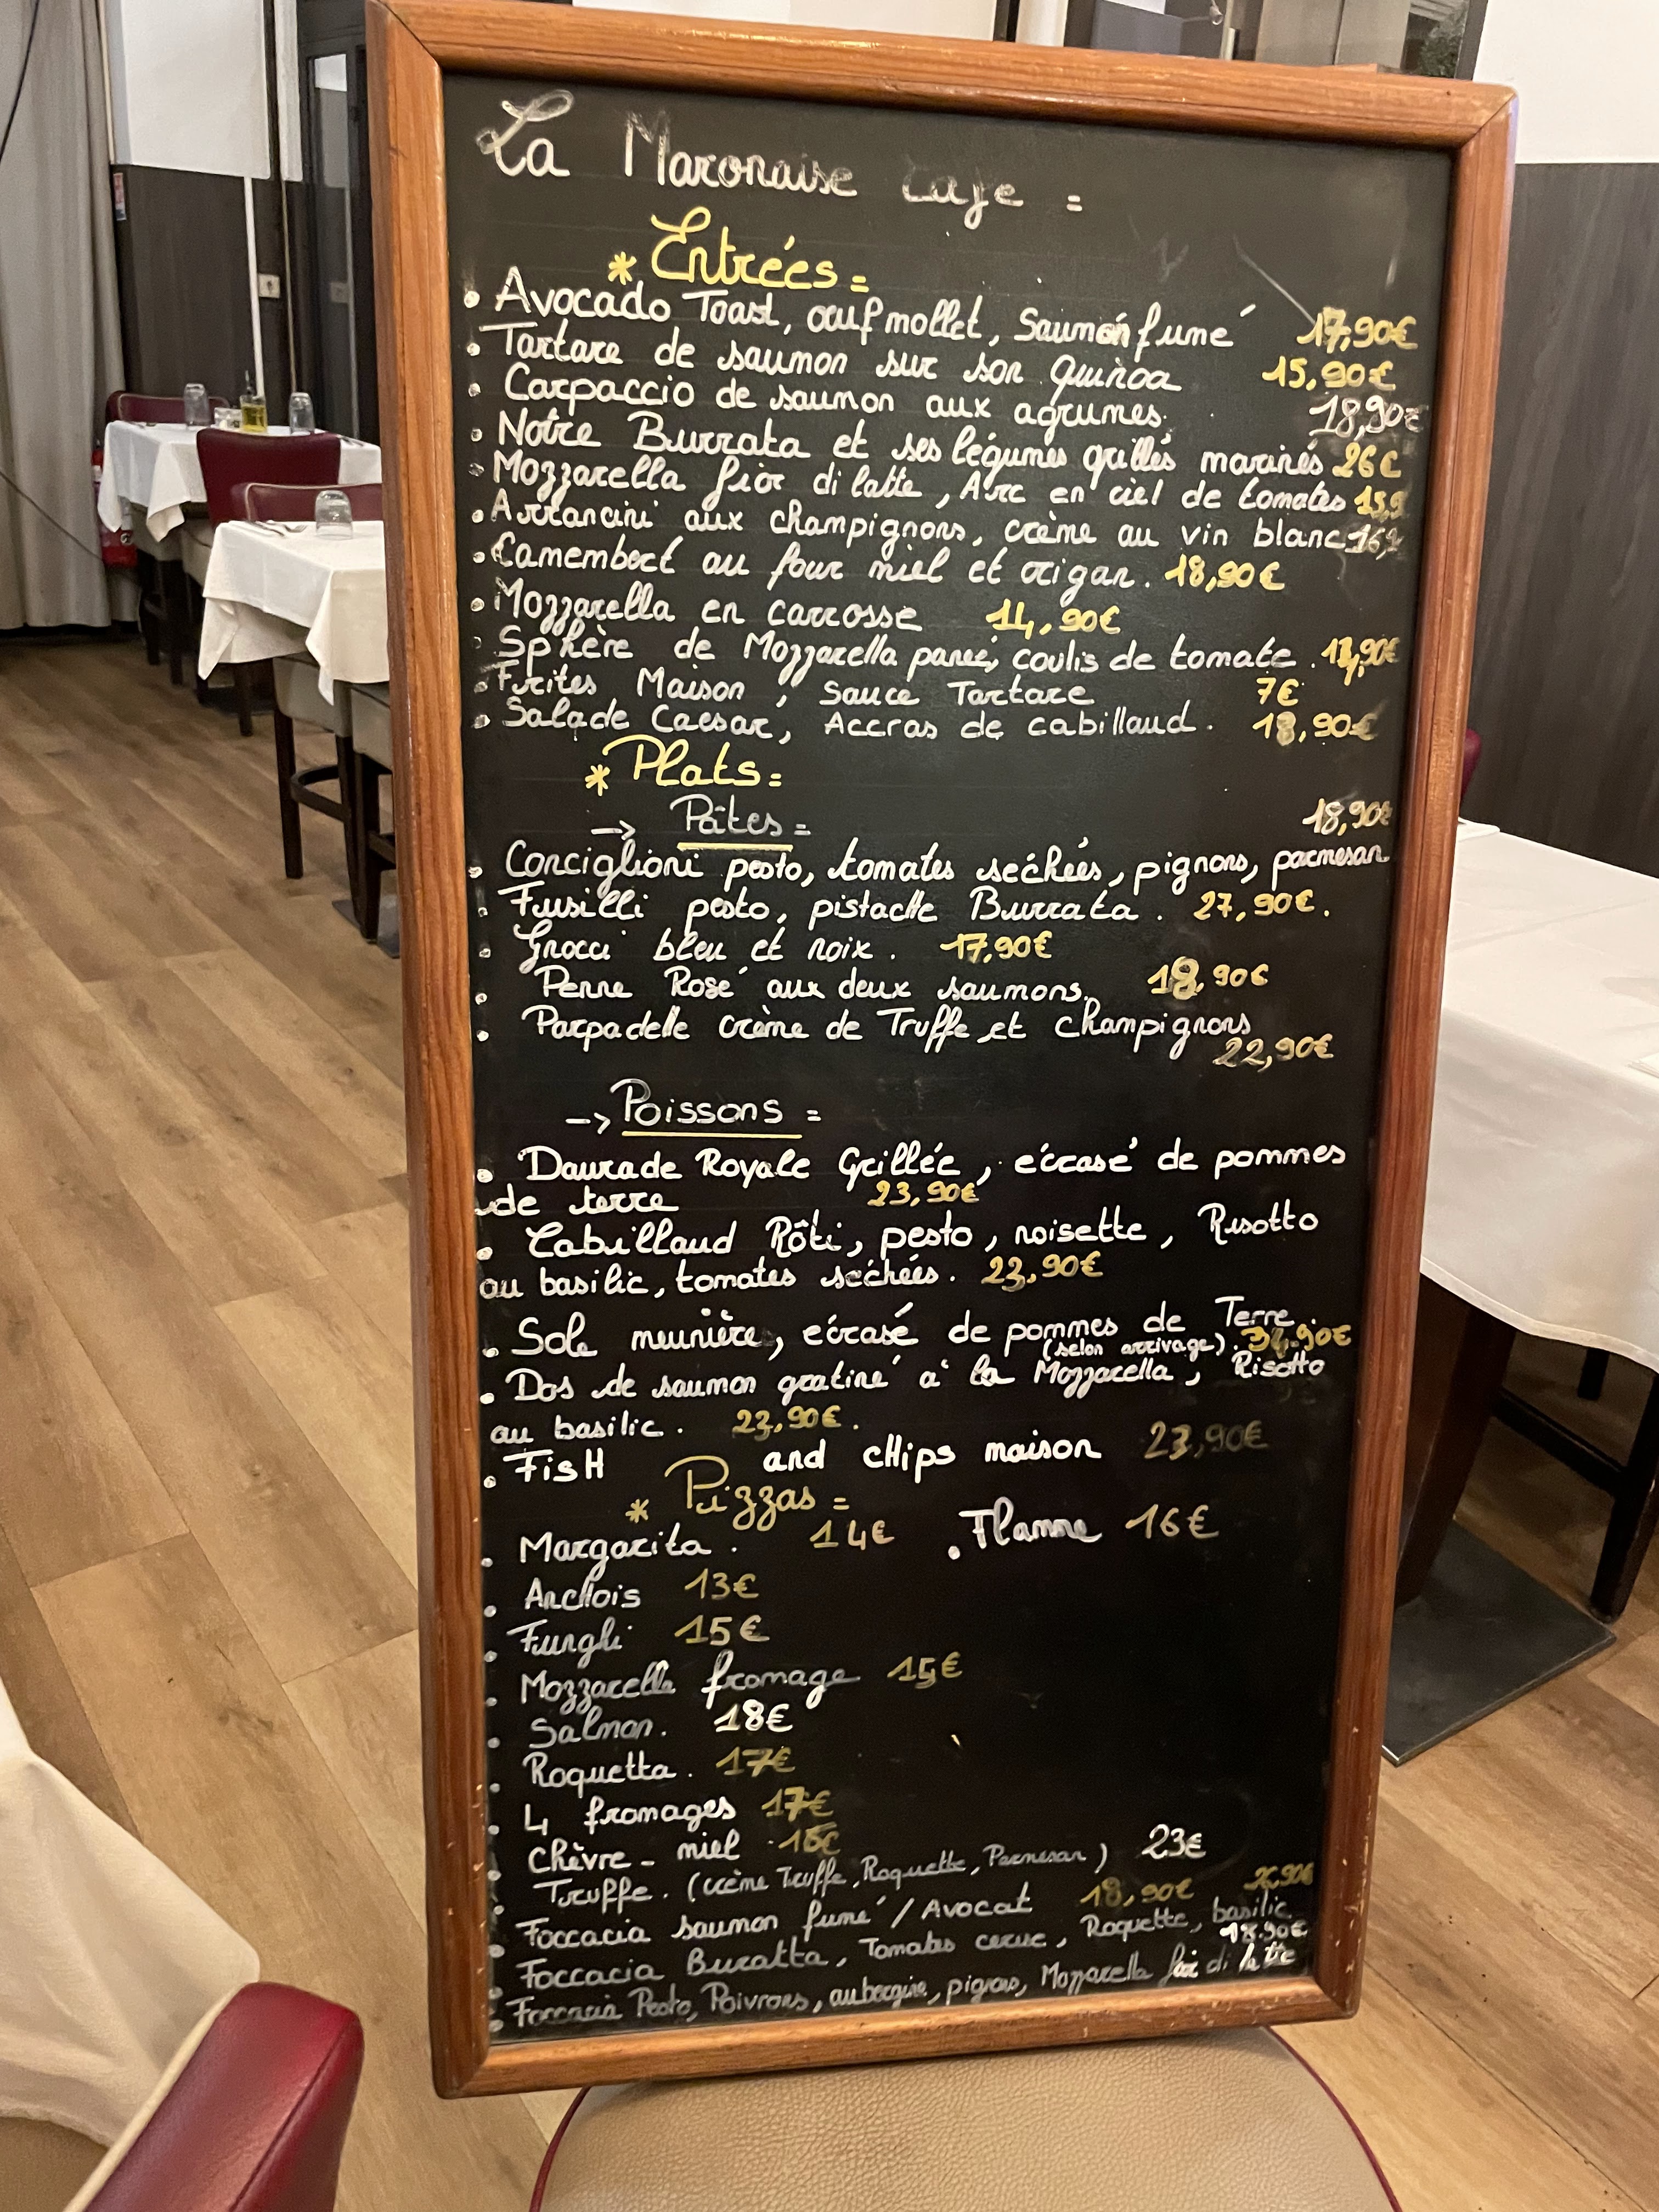 La Maronaise cafe =
* Entrées =
• Avocado Toast, œuf mollet, Saumon fumé 17,90€
• Tartare de saumon sur son quinoa 15,90€
• Carpaccio de saumon aux agrumes. 18,90€
• Notre Burrata et ses légumes grillés marinés 26€
• Mozzarella fior di latte, Arc en ciel de tomates
• Arrancini aux champignons, crème au vin blanc
• Camembert au four miel et origan. 18,90€
• Mozzarella en carrosse 14,90€
• Sphère de Mozzarella panée, coulis de tomate.
• Frites Maison, Sauce Tartare 7€
• Salade Caesar, Accras de cabillaud. 18,90€
* Plats =
-> Pâtes = 18,90€
• Conciglioni pesto, tomates sechées, pignons, parmesan
• Fusilli pesto, pistache Burrata. 27,90€.
• Gnocci bleu et noix. 17,90€
• Penne Rosé aux deux saumons. 18,90€
• Parpadelle crème de Truffe et champignons
22,90€
-> Poissons =
• Daurade Royale Grillée, écrasé de pommes
de terre 23,90€
• Cabillaud Rôti, pesto, noisette, Risotto
au basilic, tomates sechées. 23,90€
• Sole meunière, écrasé de pommes de Terre.
(selon arrivage).
• Dos de saumon gratiné à la Mozzarella, Risotto
au basilic. 23,90€.
• FisH and cHips maison 23,90€
* Pizzas =
• Margarita. 14€ • Flamme 16€
• Anchois 13€
• Funghi 15€
• Mozzarella fromage 15€
• Salmon. 18€
• Roquetta. 17€
• 4 fromages 17€
• chèvre - miel
• Truffe. (crème Truffe, Roquette, Parmesan) 23€
• Foccacia saumon fumé / Avocat 18,90€
• Foccacia Buratta, Tomates cerise, Roquette, basilic
18.90€
• Foccacia Pesto, Poivrons, aubergine, pignons, Mozzarella fior di latte